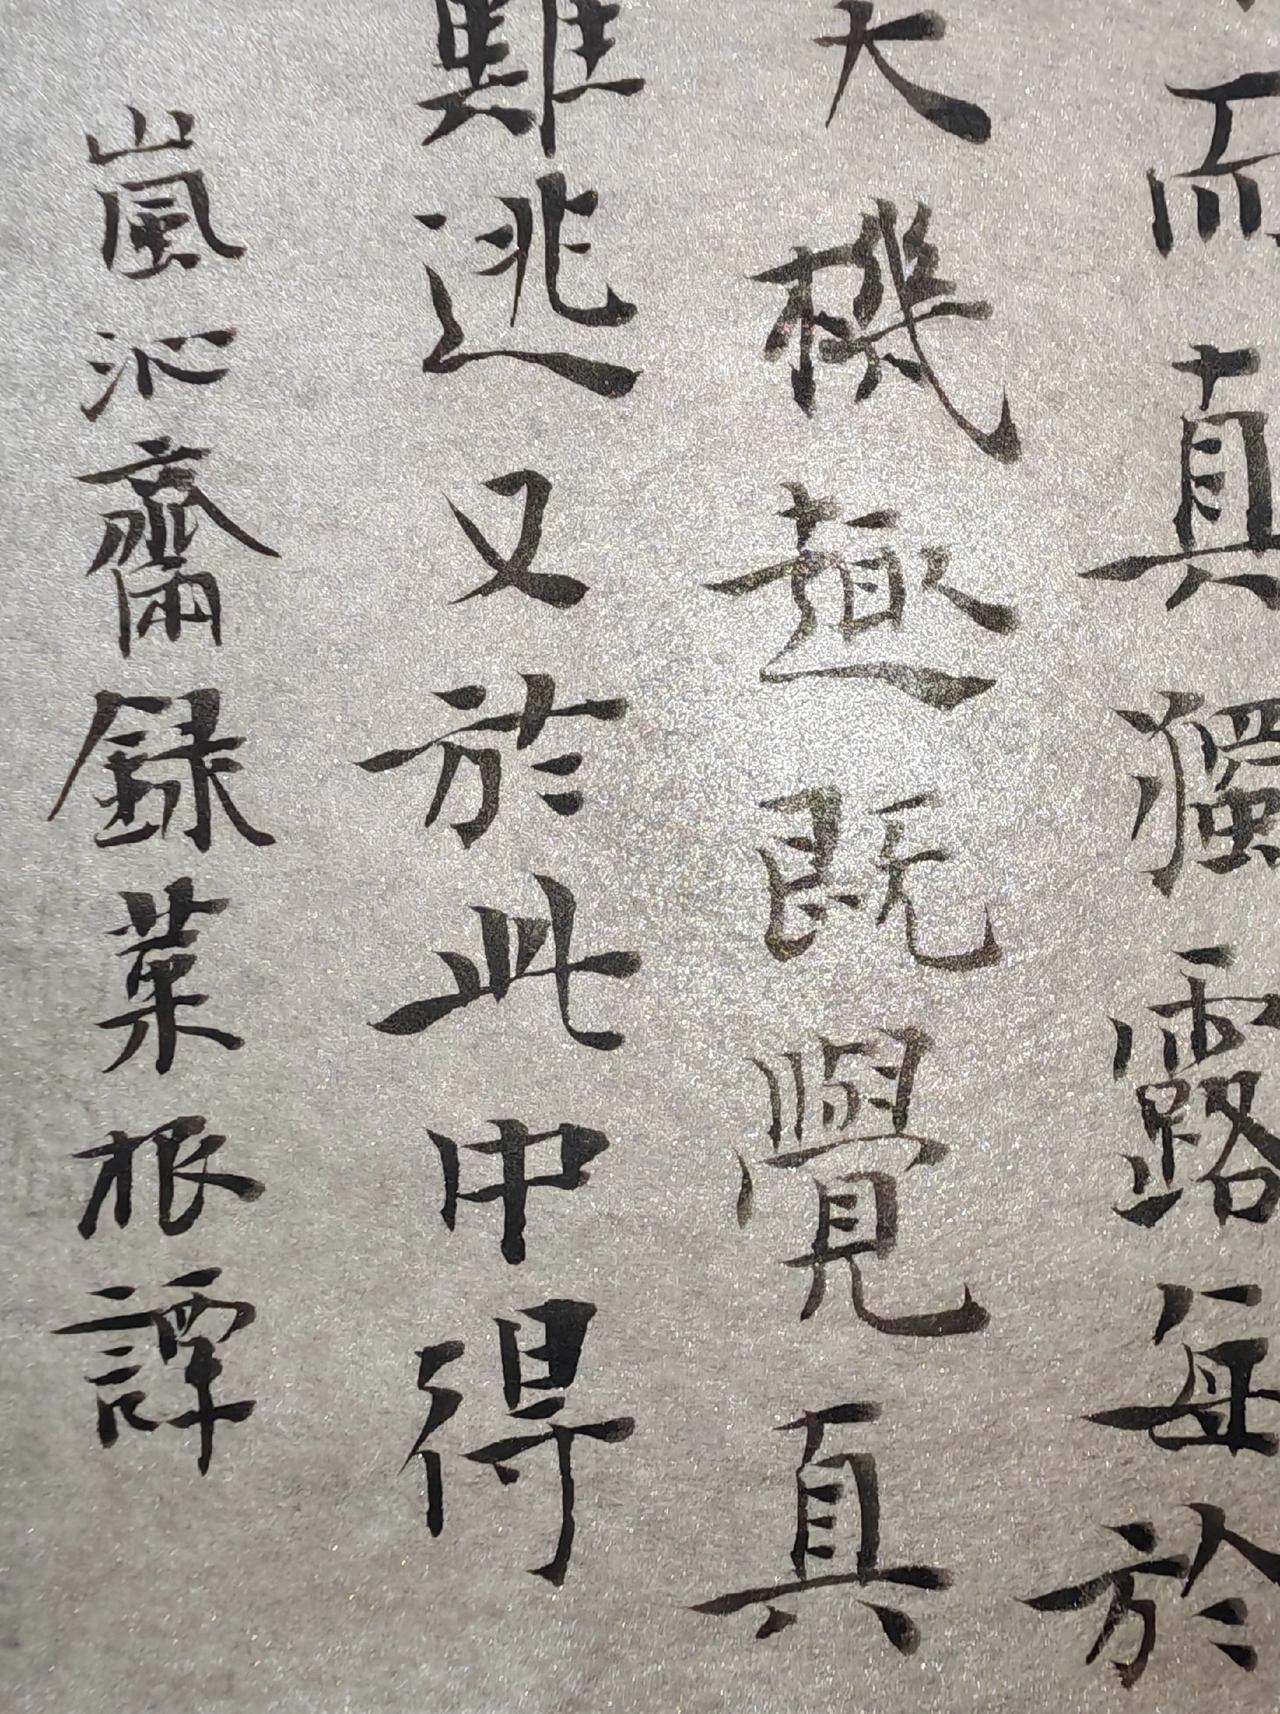 而真獨露每於
大機趣既覺真
難逃又於此中得
嵐沁齋錄菜根譚